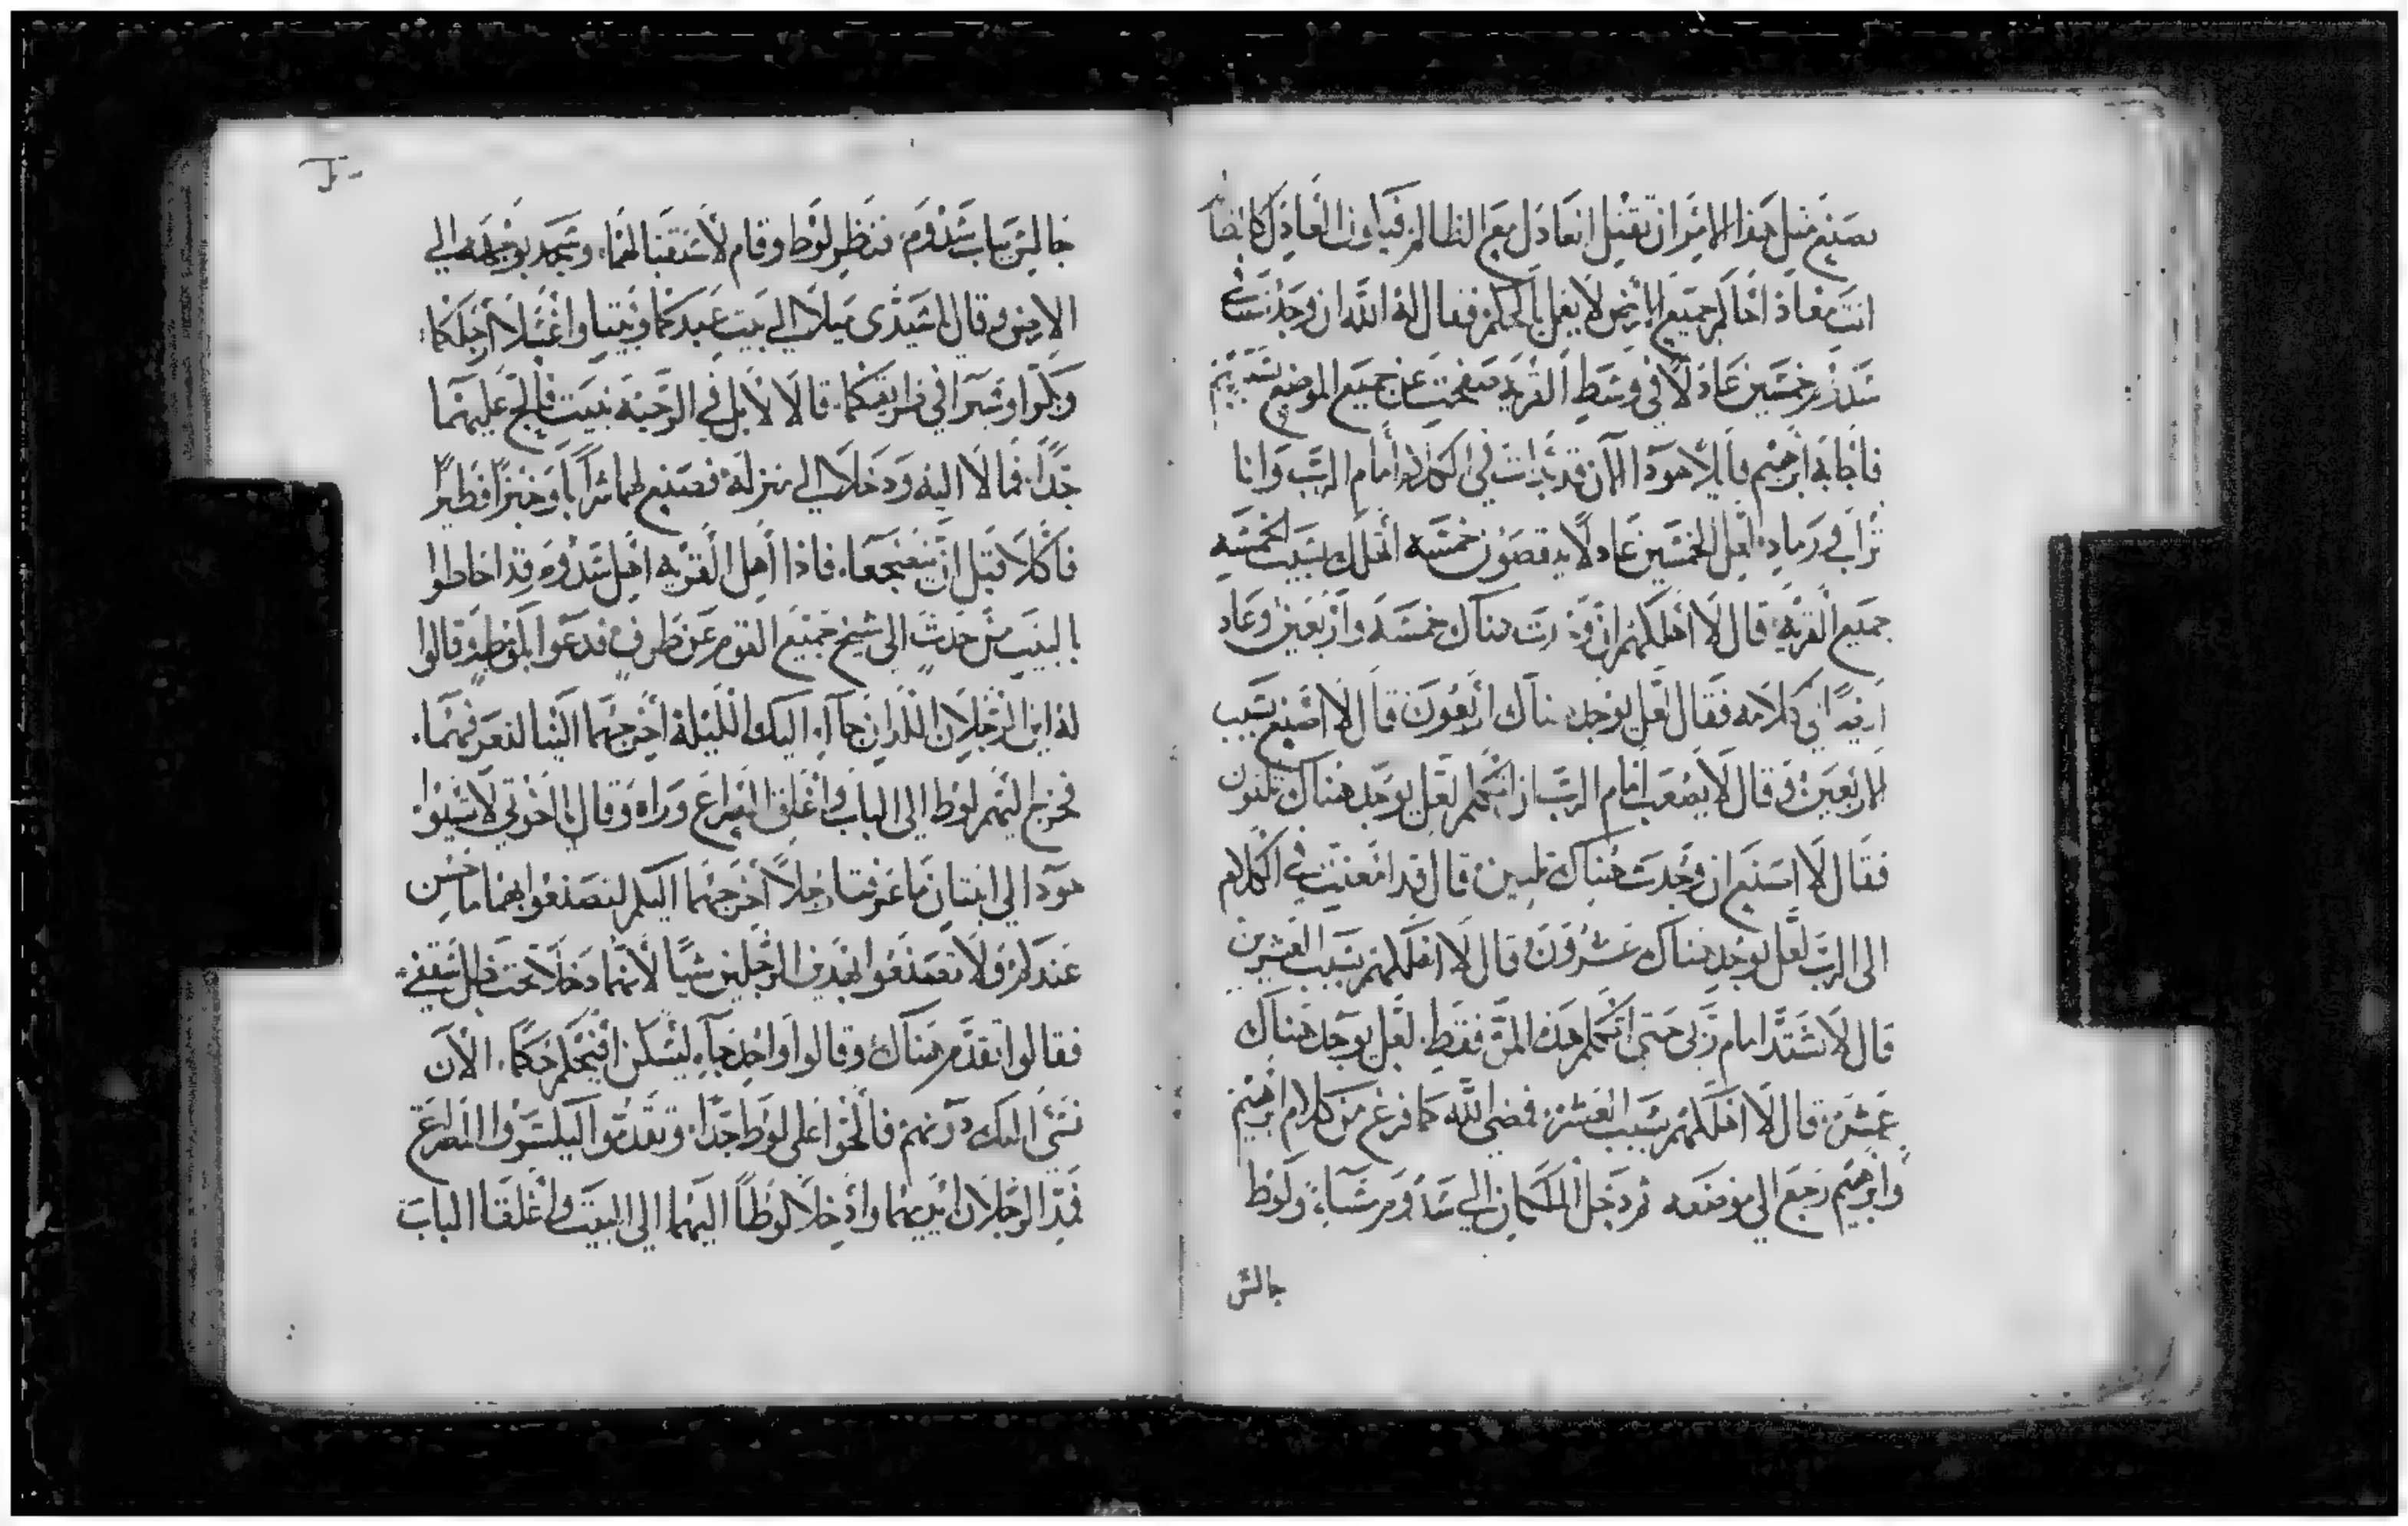 يصنع مثل هذا الامر ان تقتل العادل مع الظالم فيكون العادل كالظا
انت معاذ احاكم جميع الارض لا يفعل بالحكم فقال له الله ان وجدت في
سدوم خمسين عادلا في وسط القرية صفحت عن جميع الموضع بسببهم
فاجابه ابرهيم قايلا هوذا الان قد بدات في الكلام امام الرب وانا
تراب ورماد لعل الخمسين عادلا ينقصون خمسه اتهلك بسبب الخمسه
جميع القرية قال لا اهلكهم ان وجدت هناك خمسة واربعين وعاد
ايضا في كلامه فقال لعل يوجد هناك اربعون قال لا اصنع بسبب
الاربعين وقال لا يصعب امام الرب ان اتكلم لعل يوجد هناك ثلثون
فقال لا اصنع ان وجدت هناك ثلثين قال قد امعنت في الكلام
الى الرب لعل يوجد هناك عشرون قال لا اهلكهم بسبب العشرين
قال لا تشتد امام ربي متى اتكلم هذه المرة فقط لعل يوجد هناك
عشرة قال لا اهلكهم بسبب العشرة فمضى الله كما فرغ من كلام ابرهيم
وابرهيم رجع الى موضعه ثم دخل الملكان الي سدوم مساء ولوط
جالس
جالس بباب سدوم فنظر لوط وقام لاستقبالهما وسجد بوجهه الي
الارض وقال يا سيدي ميلا الي بيت عبدكما وبيتا واغسلا ارجلكما
وبكروا وسيرا في طريقكما قالا لا بل في الرحبة نبيت فالح عليهما
جدا فمالا اليه ودخلا الي منزله فصنع لهما شرابا وخبزا فطيرا
فاكلا قبل ان يضجعا فاذا اهل القرية اهل سدوم قد احاطوا
بالبيت من حدث الى شيخ جميع القوم عن طرف فدعوا بلوط وقالوا
له اين الرجلان اللذان جاآ اليك الليلة اخرجهما الينا لنعرفهما
فخرج اليهم لوط الى الباب واغلق المصراع وراه وقال يا اخوتي لا تسيوا
هوذا لي ابنتان ما عرفتا رجلا اخرجهما اليكم لتصنعوا بهما ما حسن
عندكم ولا تصنعوا بهذين الرجلين شيا لانهما دخلا تحت ظل سقفي
فقالوا تقدم هناك وقالوا واحد جاء ليسكن افيحكم حكما الان
نسئ اليك دونهم فالحوا على لوط جدا وتقدموا ليكسروا المصراع
فمد الرجلان ايديهما وادخلا لوطا اليهما الى البيت واغلقا الباب